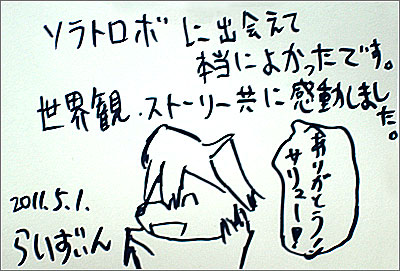 ソラトロボに出会えて
本当によかったです。
世界観・ストーリー共に感動しました。
ありがとう!
サリュー!!
2011.5.1.
らいずぃん